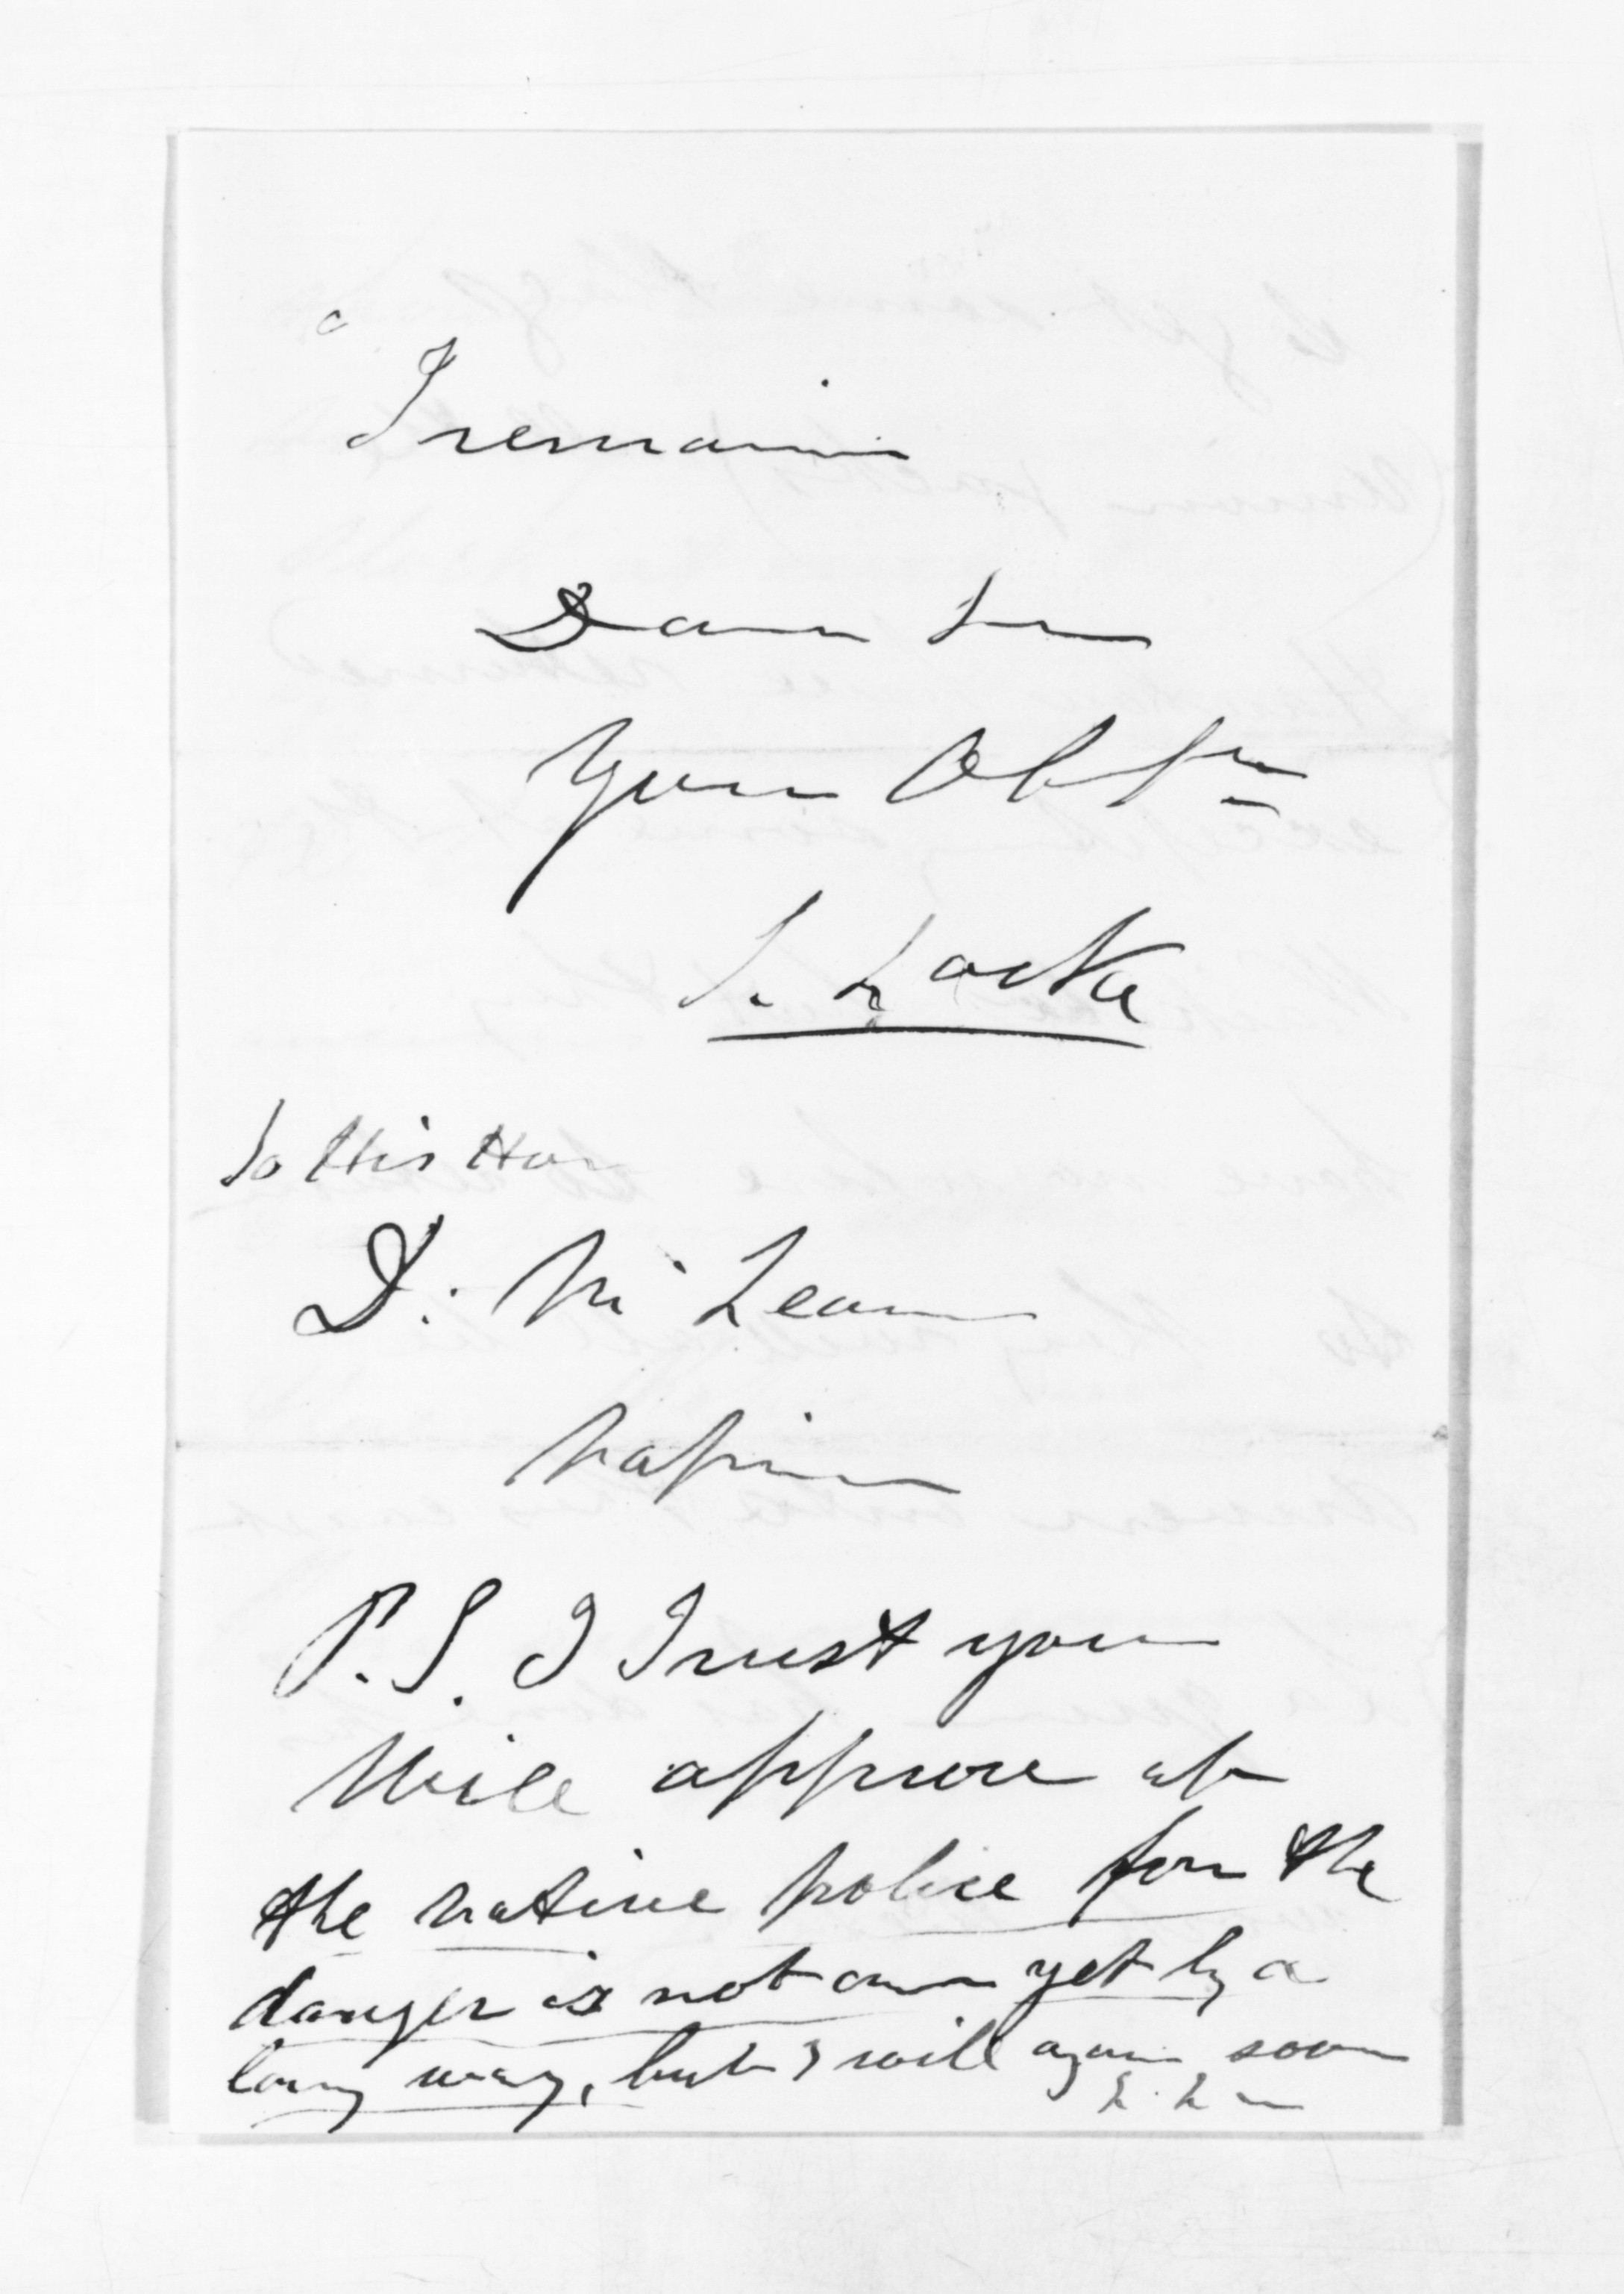 I remain
Dear Sir
Your Obt Sr
S. Locke
To His Hon
D. McLean
Napier
P.S. I Trust you
Will approve of
the native police for the
danger is not over yet by a
long way, but I will again soon